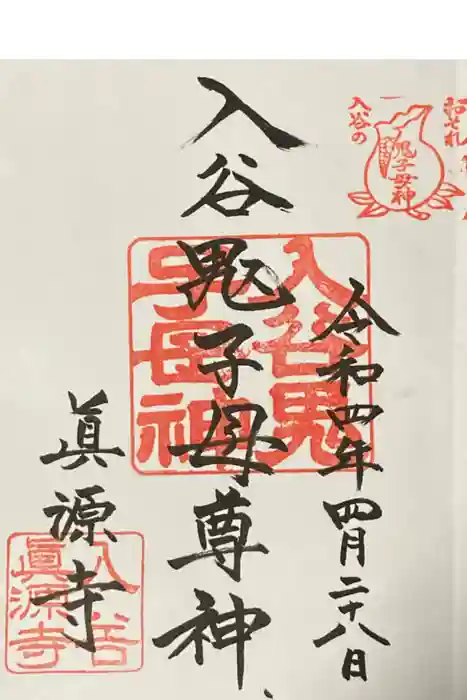 おそれ
入谷の
鬼子母神
令和四年四月二十八日
入谷鬼子母尊神
入谷鬼
子母神
眞源寺
入谷
眞源寺